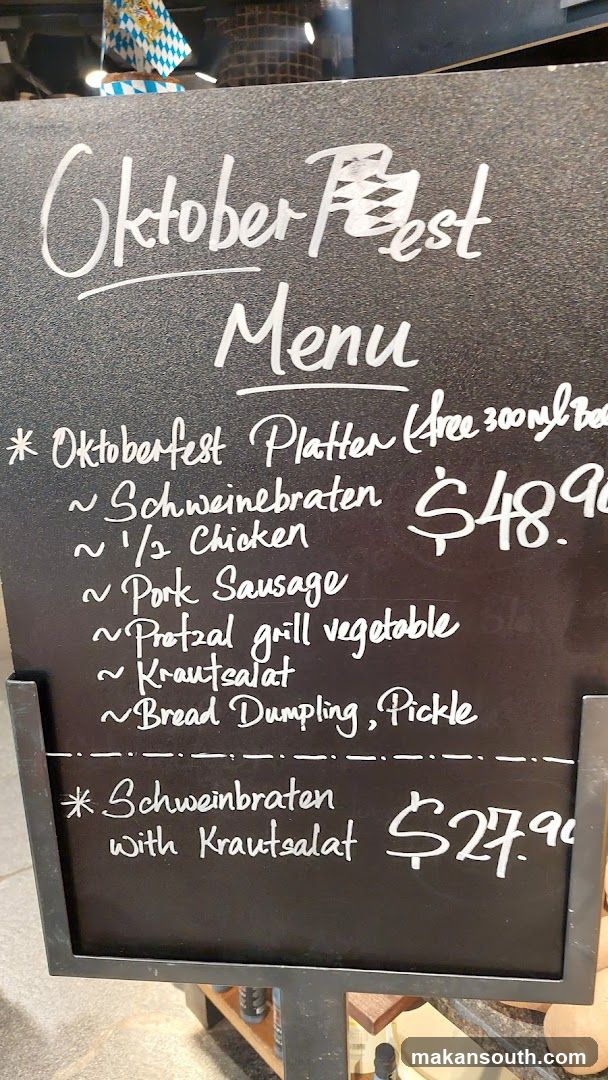 Oktober Fest
Menu
* Oktoberfest Platter (free 300ml Bee
~ Schweinebraten $48.90
~ 1/2 Chicken
~ Pork Sausage
~ Pretzal grill vegetable
~ Krautsalat
~ Bread Dumpling, Pickle
* Schweinbraten
with Krautsalat $27.90
makansouth.com